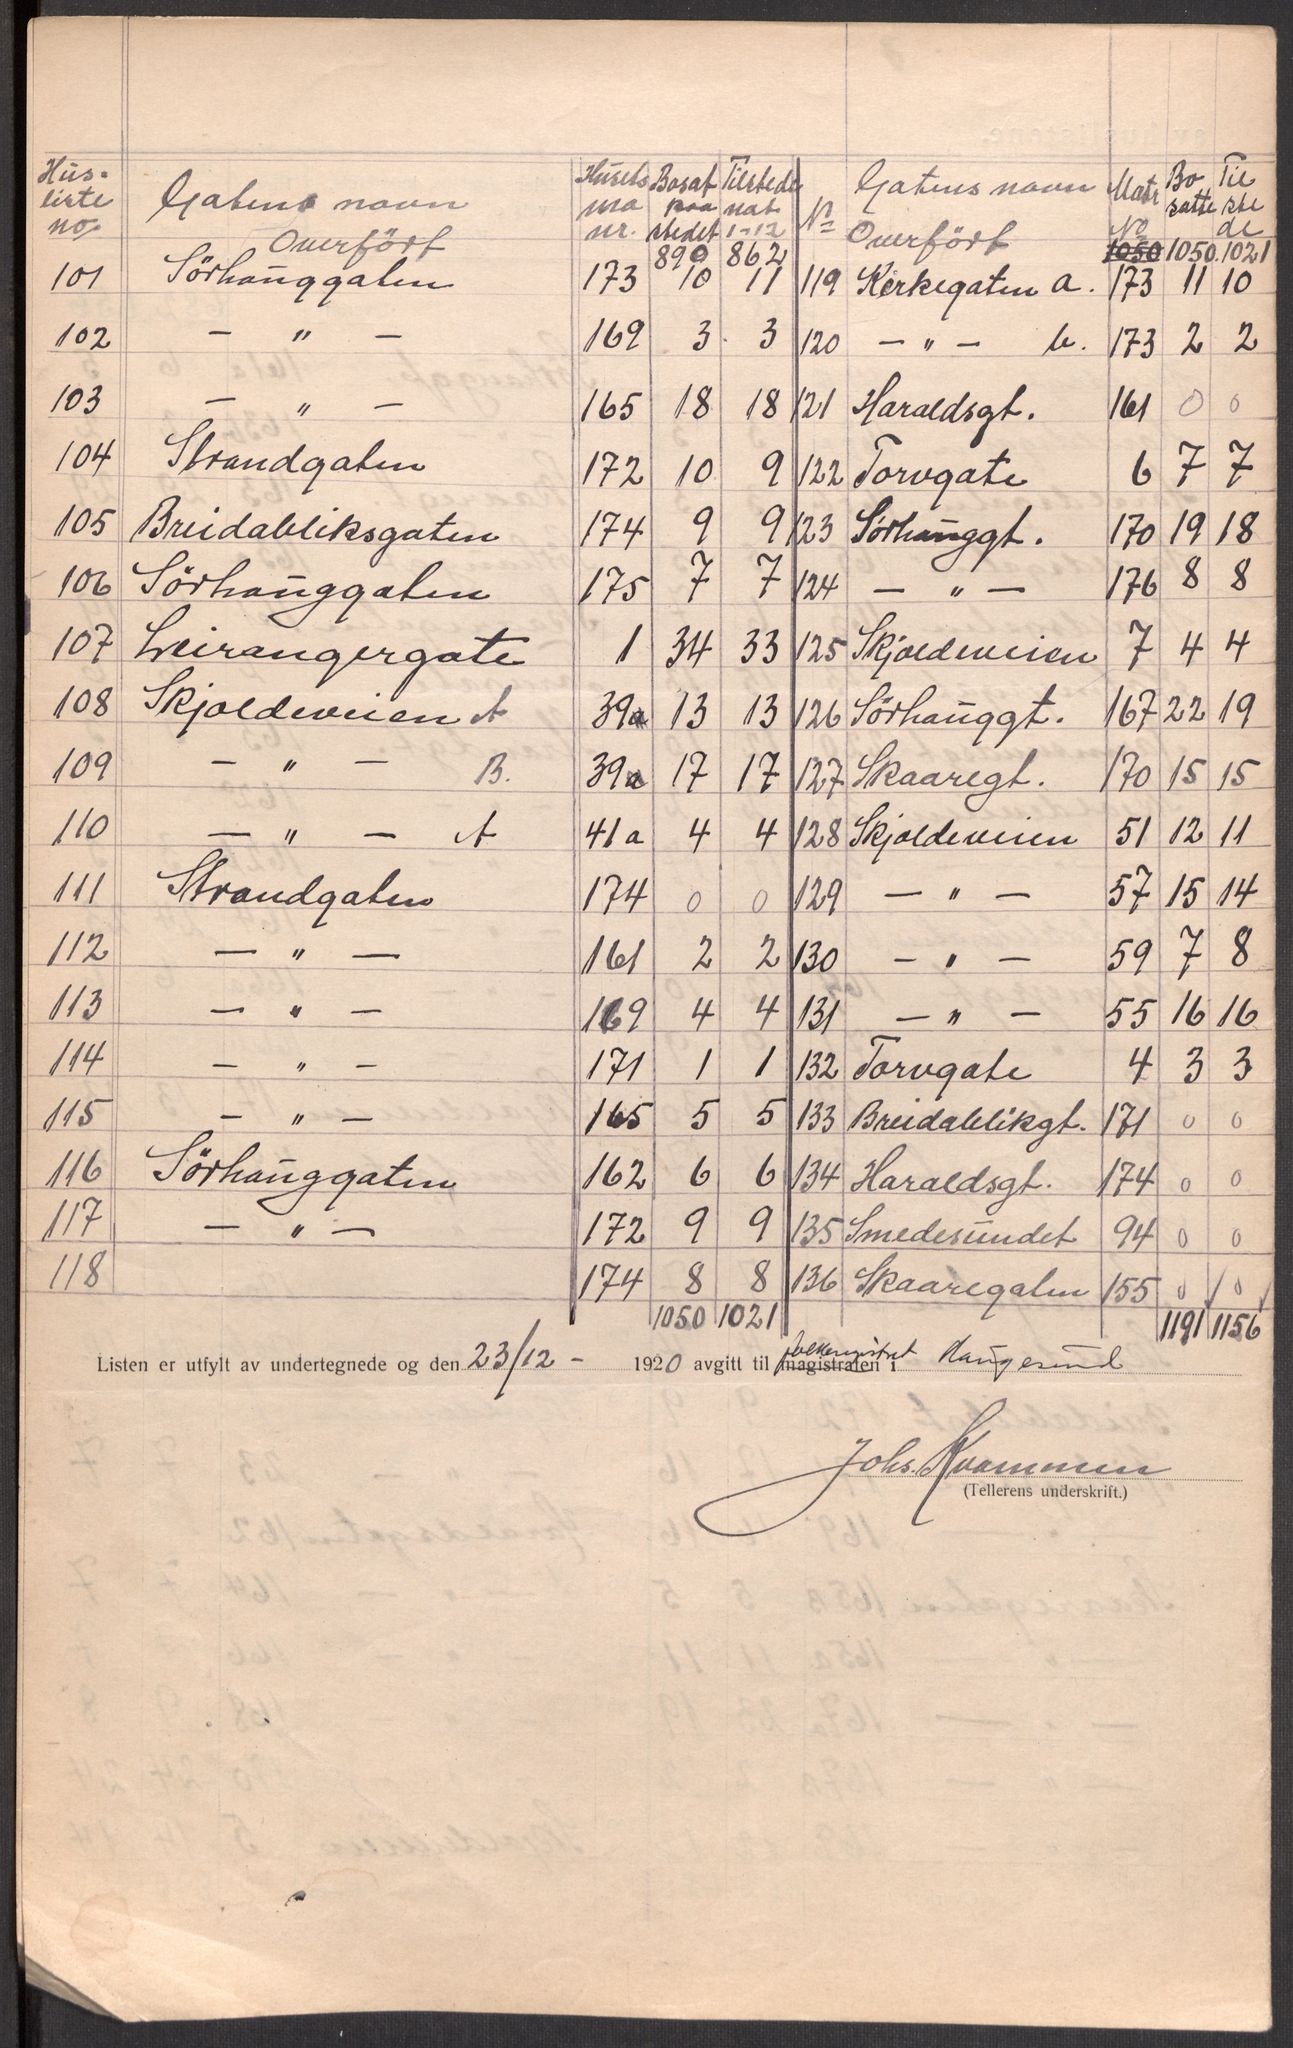 Husliste no. | Gatens navn | Husets ma nr. | Bosat paa stedet | Tilstede nat 1-12 | No | Gatens navn | Matr No | Bosatte | Tilstede
Overført | 890 | 862 | Overført | 1050 | 1050. | 1021
101 Sörhauggaten 173 10 11 | 119 Kirkegaten a. 173 11 10
102 — " — 169 3 3 | 120 — " — b. 173 2 2
103 — " — 165 18 18 | 121 Haraldsgt. 161 0 0
104 Strandgaten 172 10 9 | 122 Torvgate 6 7 7
105 Breidabliksgaten 174 9 9 | 123 Sörhauggt. 170 19 18
106 Sörhauggaten 175 7 7 | 124 — " — 176 8 8
107 Leirangergate 1 34 33 | 125 Skjoldeveien 7 4 4
108 Skjoldeveien A 39a 13 13 | 126 Sörhauggt. 167 22 19
109 — " — B. 39a 17 17 | 127 Skaaregt. 170 15 15
110 — " — A 41a 4 4 | 128 Skjoldeveien 51 12 11
111 Strandgaten 174 0 0 | 129 — " — 57 15 14
112 — " — 161 2 2 | 130 — " — 59 7 8
113 — " — 169 4 4 | 131 — " — 55 16 16
114 — " — 171 1 1 | 132 Torvgate 4 3 3
115 — " — 165 5 5 | 133 Breidablikgt. 171 0 0
116 Sörhauggaten 162 6 6 | 134 Haraldsgt. 174 0 0
117 — " — 172 9 9 | 135 Smedesundet 94 0 0
118 174 8 8 | 136 Skaaregaten 155 0 0
1050 1021 | 1191 1156
Listen er utfylt av undertegnede og den 23/12 - 1920 avgitt til magistraten folkeregistret i Haugesund
Johs. Kvammen
(Tellerens underskrift.)